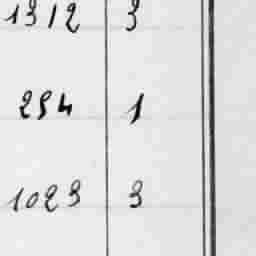 1312 3
254 1
1023 3